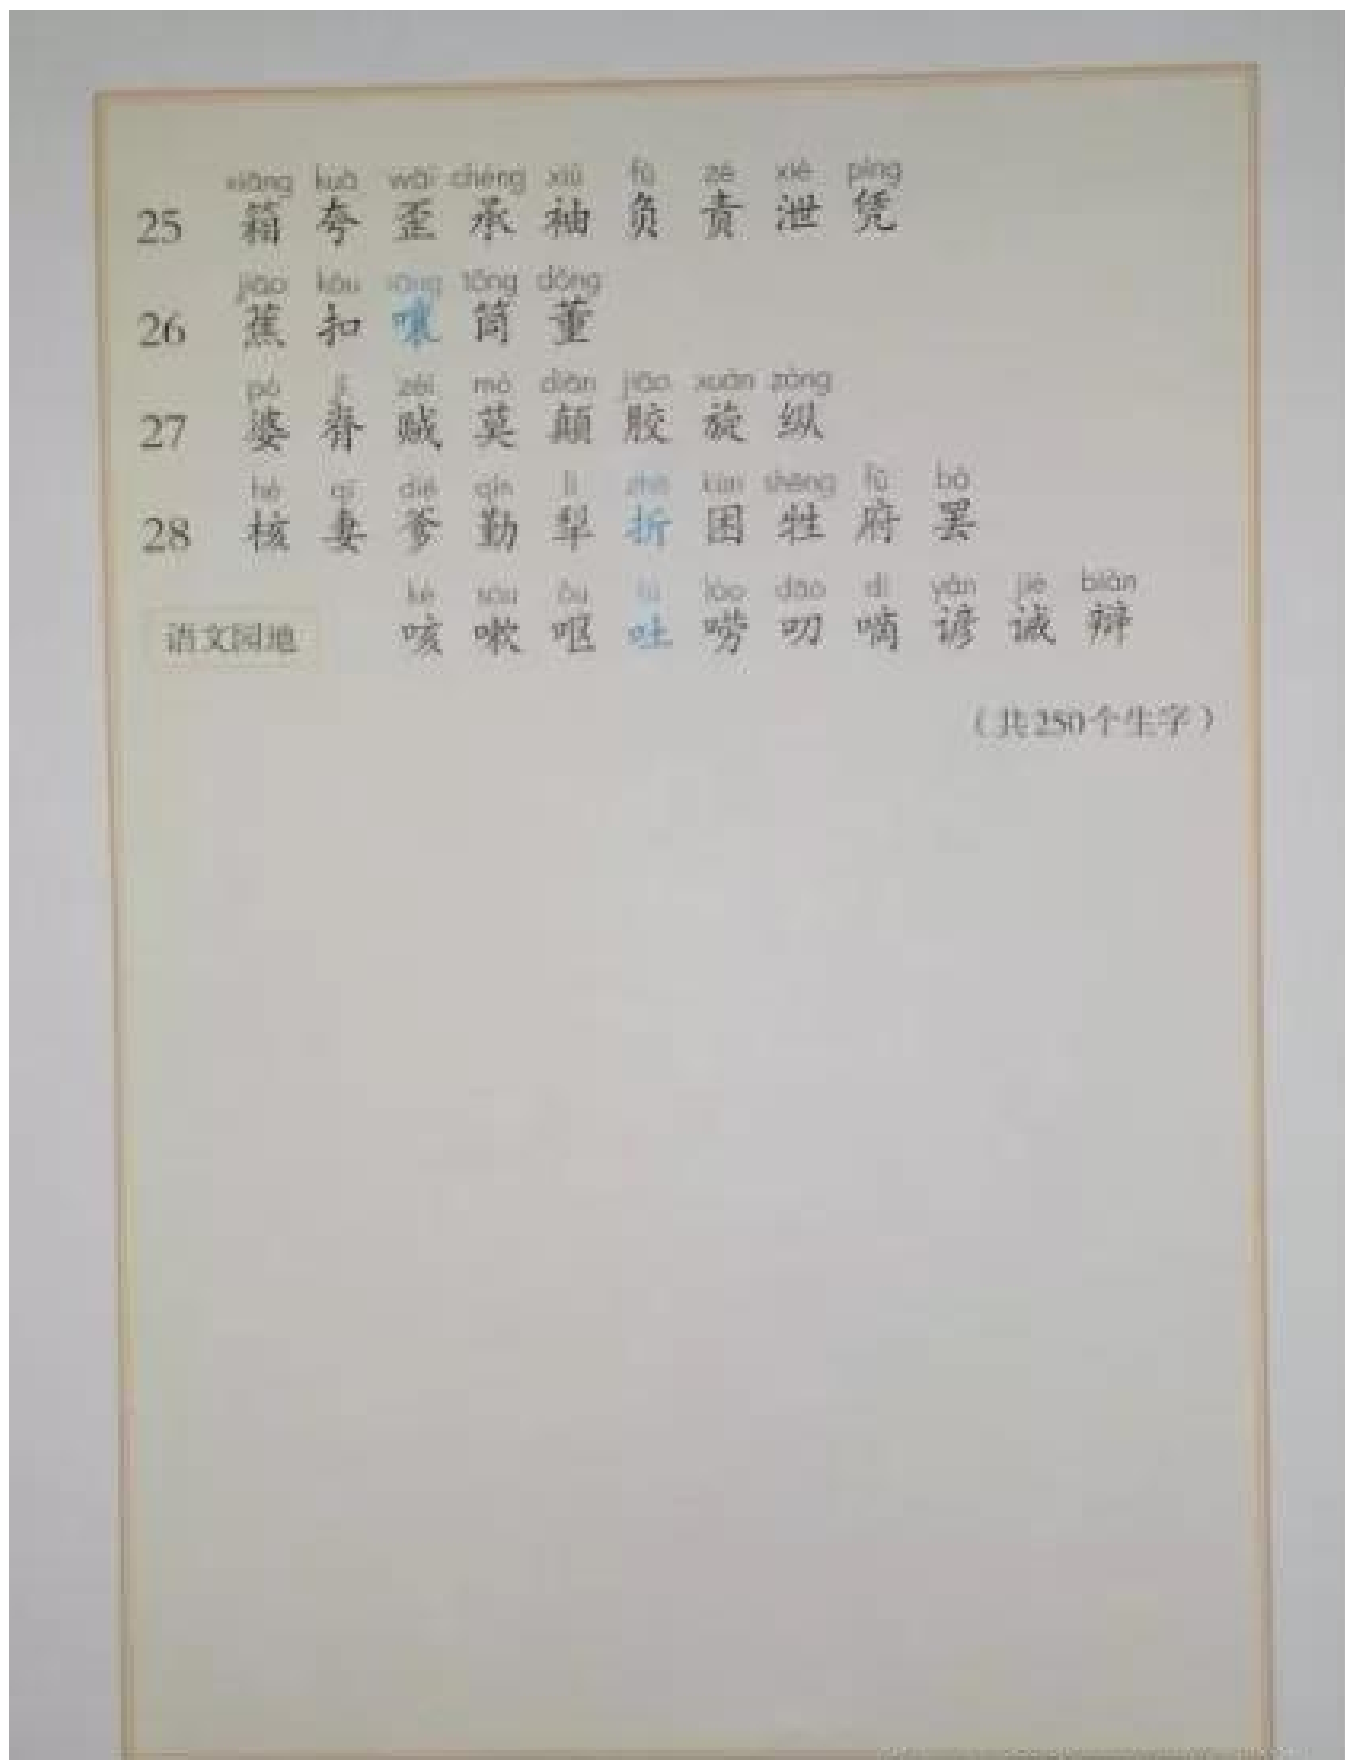 xiāng kuā wāi chéng xiù fù zé xiè píng
25 箱 夸 歪 承 袖 负 责 泄 凭
jiāo kòu rāng tǒng dǒng
26 蕉 扣 嚷 筒 董
pó jǐ zéi mò diān jiāo xuán zòng
27 婆 脊 贼 莫 颠 胶 旋 纵
hé qī diē qín lí zhē kùn shēng fǔ bà
28 核 妻 爹 勤 犁 折 困 牲 府 罢
ké sòu ǒu tù láo dāo dí yàn jiè biàn
语文园地 咳 嗽 呕 吐 唠 叨 嘀 谚 诫 辩
（共250个生字）